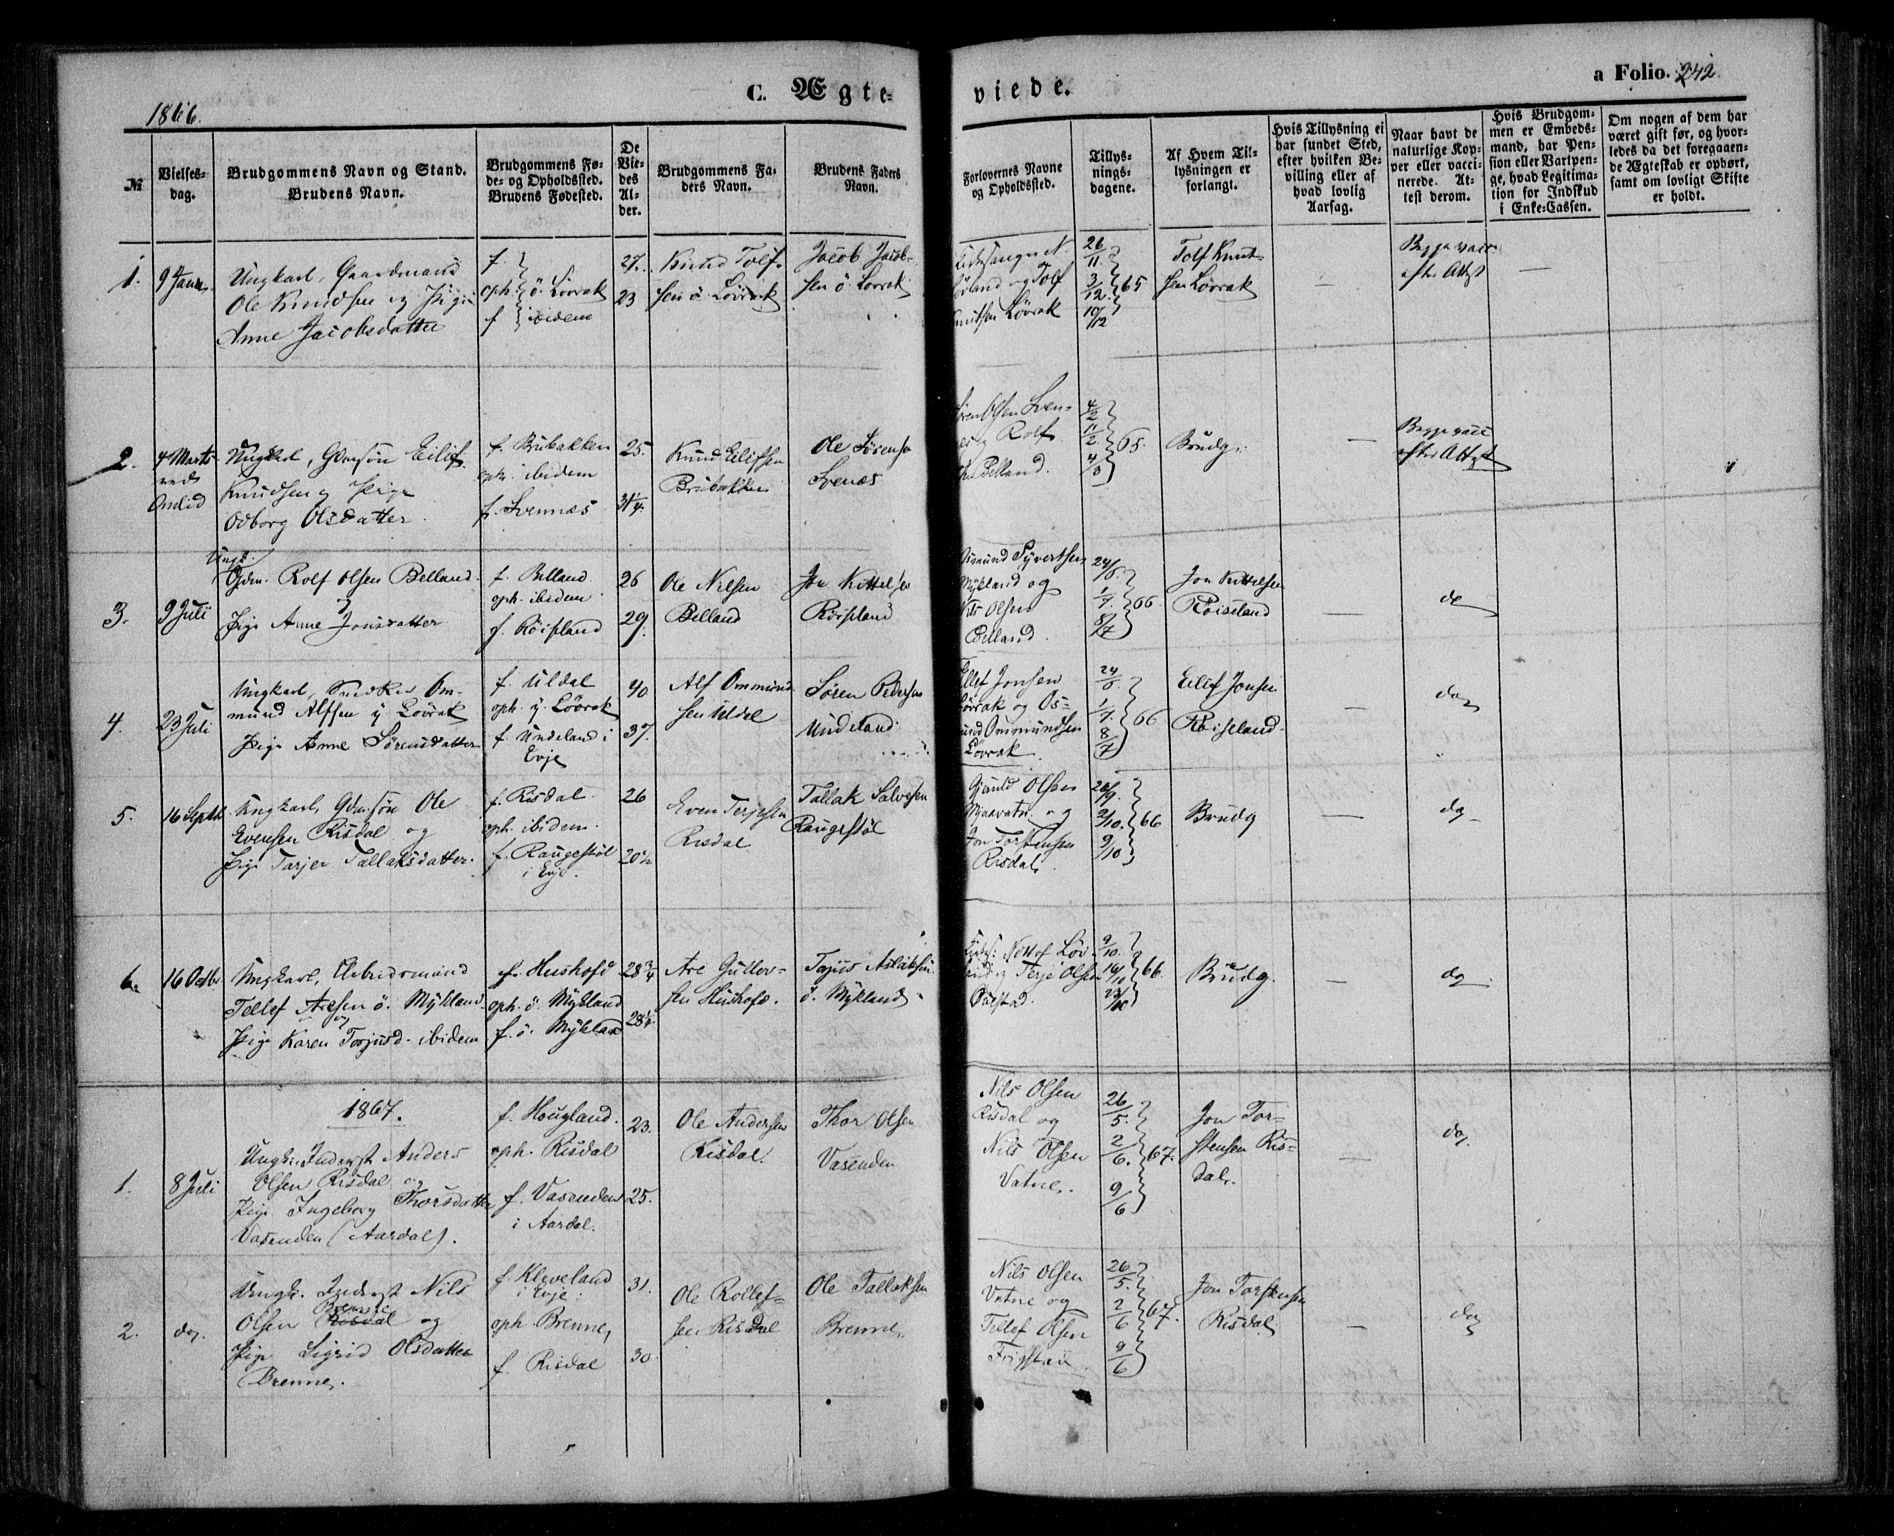 1866.
C. Ægte-
viede.
a Folio. 242.
№
Vielses-
dag.
Brudgommens Navn og Stand.
Brudens Navn.
Brudgommens Fø-
de- og Opholdssted.
Brudens Fødested.
De
Vie-
des
Al-
der.
Brudgommens Fa-
ders Navn.
Brudens Faders
Navn.
Forlovernes Navne
og Opholdssted.
Tillys-
nings-
dagene.
Af Hvem Til-
lysningen er
forlangt.
Hvis Tillysning ei
har fundet Sted,
efter hvilken Be-
villing eller af
hvad lovlig
Aarsag.
Naar havt de
naturlige Kop-
per eller vacci-
nerede. At-
test derom.
Hvis Brudgom-
men er Embeds-
mand, har Pen-
sion eller Vartpen-
ge, hvad Legitima-
tion for Indskud
i Enke-Cassen.
Om nogen af dem har
været gift før, og hvor-
ledes da det foregaaen-
de Ægteskab er ophørt,
samt om lovligt Skifte
er holdt.
1.
9 Janr.
Ungkarl, Gaardmand
Ole Knudsen og Pige
Anne Jacobsdatter
f.
oph. ö. Lövrak
f ibidem
27.
23
Knud Tolf-
sen ö Lövrak
Jacob Jacob-
sen ö. Lovrak
og Tolf
Knutsen Lövrak
26/11.
3/12. 65
10/12
Tolf Knut-
sen Lövrak
—
Begge vacc
efter Attest
—
2.
4 Marts
ved
Omlid
Ungkarl, Gdmsön Eilif
Knudsen og Pige
Odborg Olsdatter
f. Brubakken
oph. ibidem
f. Svennæs
25.
31¼.
Knud Eilifsen
Brubakken
Ole Sørensen
Svenæs
Sören Olsen Sven-
næs og Rolf
Belland.
4/2
11/2 65.
4/3
Brudg.
—
Begge vacc
efter Attest
3.
9 Juli
Ungk.
Gdm. Rolf Olsen Belland.
Pige Anne Jonsdatter
f. Belland
oph. ibidem
f. Röisland
26
29.
Ole Nilsen
Belland
Jon Kittelsen
Röisland
Osmund Syvertsen
Mykland og
Nils Olsen
Belland.
24/6.
1/7. 66
8/7
Jon Kittelsen
Röiseland
—
do
4.
23 Juli
Ungkarl, Snedker Om-
mund Alfsen y. Lövrak
Pige Anne Sörensdatter
f. Uldal
oph. y. Lövrak
f Undeland i
Evje
40
37.
Alf Ommund-
sen Uldal
Sören Pedersen
Undeland.
Ellef Jonsen
Lövrak og Os-
mund Ommundsen
Lövrak.
24/6
1/7. 66
8/7
Eilef Jonsen
Röiseland.
—
do
5.
16 Septbr
Ungkarl, Gdmsön Ole
Evensen Risdal og
Pige Tarjer Tallaksdatter.
f. Risdal.
oph. ibidem.
f. Raugestöl
i Evje.
26
20½
Even Terjesen
Risdal
Tallak Salvesen
Raugestöl
Gjeruld Olsen
Myaavatn og
Jon Torstensen
Risdal.
26/9.
2/10. 66
9/10
Brudg
—
do
6.
16 Octbr
Ungkarl, Arbeidsmand
Tellef Aresen ö. Mykland
og
Pige Karen Torjusd. ibidem
f. Hushofd
oph. ö. Mykland
f. ö. Mykland
28¾
28½
Are Gutter-
sen Hushofd.
Tajus Aslaksen
ö. Mykland.
Nottof Löv-
Terje Olsen
9/10.
16/10 66.
23/10
Brudg.
—
do
1867.
1.
8 Juli
Ungk. Inderst Anders
Olsen Risdal og
Pige Ingeborg Thorsdatter
Vasenden (Aardal).
f. Hougland.
oph. Risdal
f. Vasenden
i Aardal.
23.
25.
Ole Andersen
Risdal.
Thor Olsen
Vasenden
Nils Olsen
Risdal og
Nils Olsen
Vatne.
26/5.
2/6. 67.
9/6
Jon Tor-
stensen Ris-
dal.
—
do.
2.
do.
Ungk. Inderst Nils
Brenne
Olsen Risdal og
Pige Sigrid Olsdatter
Brenne.
f. Kleveland
i Evje.
oph. Brenne,
f Risdal
31.
30
Ole Rollef-
sen Risdal
Ole Tallaksen
Brenne,
Nils Olsen
Vatne og
Tellef Olsen
Frigstad.
26/5.
2/6 67.
9/6
Jon Torstensen
Risdal.
—
do